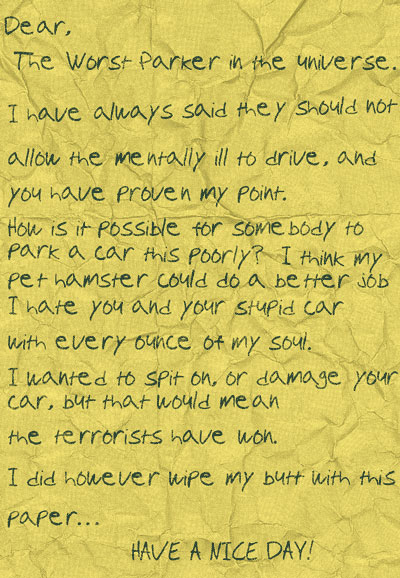 Dear,
The Worst Parker in the universe.
I have always said they should not
allow the mentally ill to drive, and
you have proven my point.
How is it possible for somebody to
park a car this poorly? I think my
pet hamster could do a better job
I hate you and your stupid car
with every ounce of my soul.
I wanted to spit on, or damage your
car, but that would mean
the terrorists have won.
I did however wipe my butt with this
paper...
HAVE A NICE DAY!